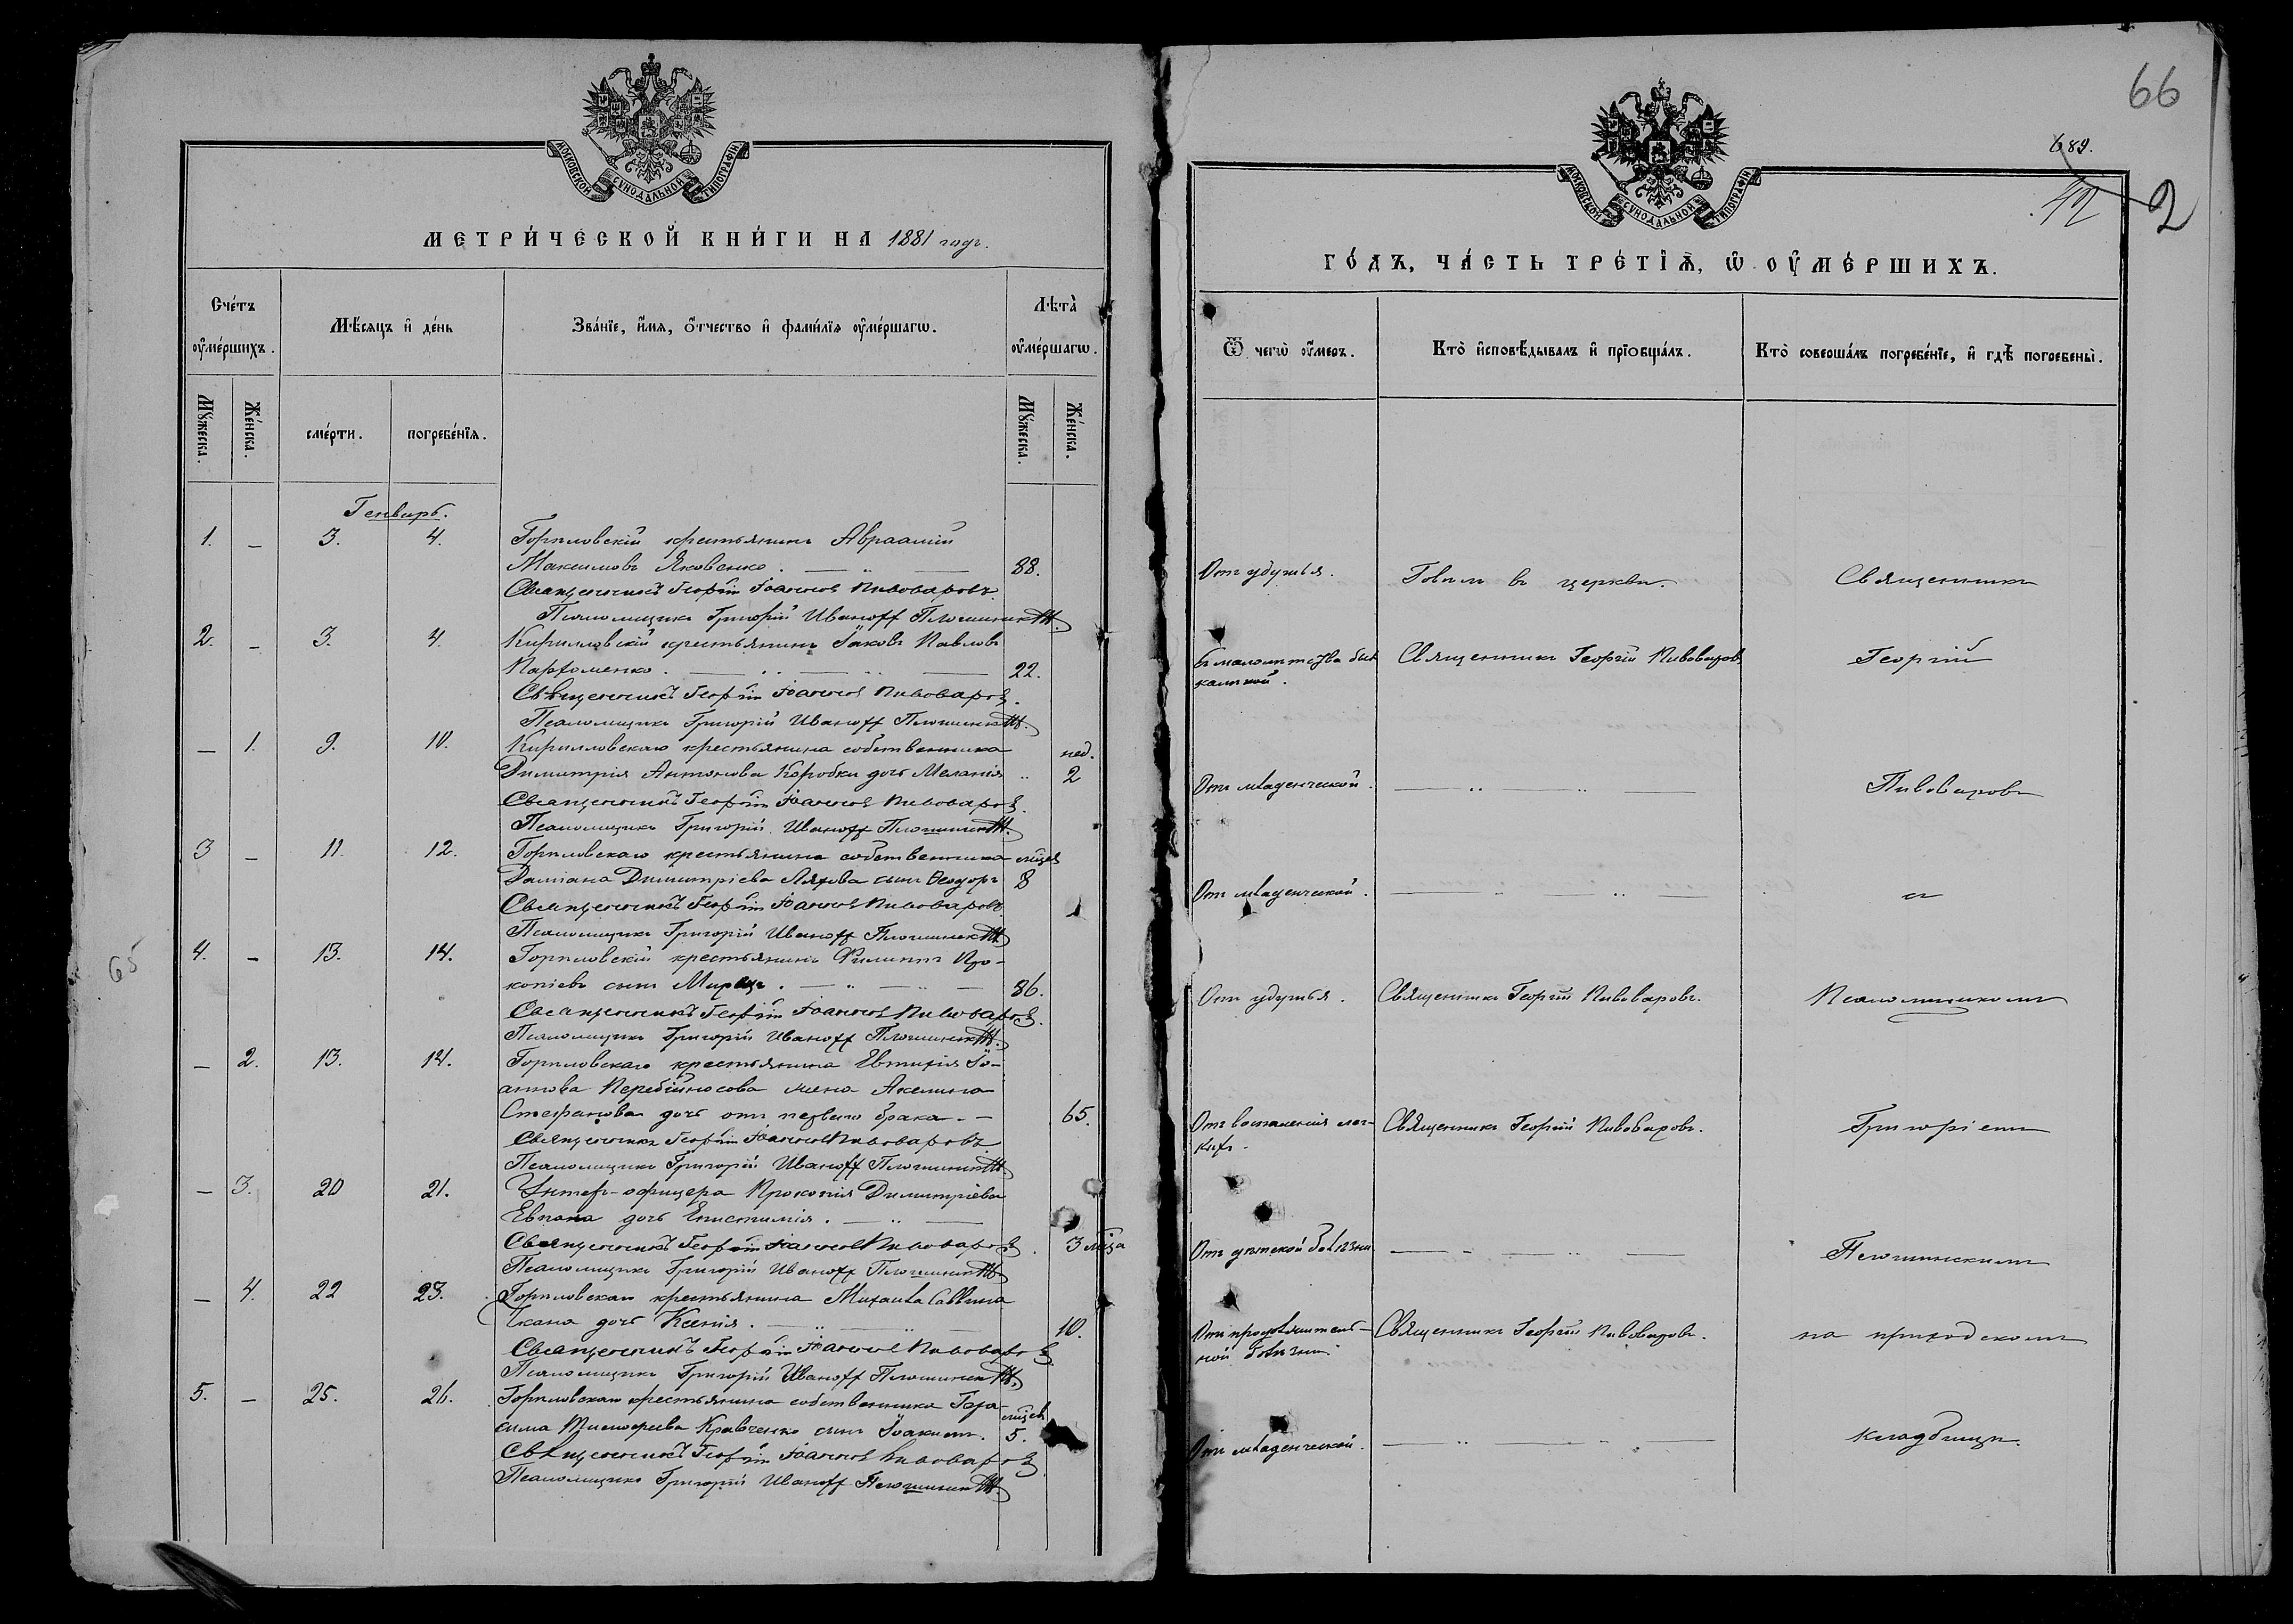 МОСКОВСКОЙ СѴНОДАЛЬНОЙ ТИПОГРАФІИ
МЕТРИ́ЧЕСКОЙ КНИ́ГИ НА 1881 годъ.
Сче́тъ оу҆ме́ршихъ.
Мѣ́сяцъ и҆ де́нь
Зва́нїе, и҆́мя, ѻ҆́тчество и҆ фами́лїя оу҆ме́ршагѡ.
Лѣта̀ оу҆ме́ршагѡ.
Мꙋ́жеска.
Же́нска.
сме́рти.
погребе́нїя.
Мꙋ́жеска.
Же́нска.
Генварь.
1. — 3. 4. Гориловскій крестьянинъ Авраамій
Максимовъ Яковенко. — „ — 88.
Священникъ Георгій Іоанновъ Пивоваровъ.
Псаломщикъ Григорій Иваноff
2. — 3. 4. Кирилловскій крестьянинъ Іаковъ Павловъ
Парfоменко. — „ — „ — 22.
Священникъ Георгій Іоанновъ Пивоваровъ.
Псаломщикъ Григорій Иваноff
— 1. 9. 10. Кирилловскаго крестьянина собственника
нед.
Димитрія Антонова Коробки дочь Меланія „ 2
Священникъ Георгій Іоанновъ Пивоваровъ.
Псаломщикъ Григорій Иваноff
3 — 11. 12. Гориловскаго крестьянина собственника мѣсяц
Даміана Димитріева Ляхова сынъ Ѳеодоръ 8
Священникъ Георгій Іоанновъ Пивоваровъ.
Псаломщикъ Григорій Иваноff
65
4. — 13. 14. Гориловскій крестьянинъ Филиппъ Про-
копіевъ сынъ — „ — „ — 86.
Священникъ Георгій Іоанновъ Пивоваровъ.
Псаломщикъ Григорій Иваноff
— 2. 13. 14. Гориловскаго крестьянина Евтихія Іо-
аннова Перебійносова жена Акилина
Стефанова дочь отъ перваго брака. — 65.
Священникъ Георгій Іоанновъ Пивоваровъ
Псаломщикъ Григорій Иваноff
— 3. 20 21. Унтеръ-офицера Прокопія Димитріева
дочь Епистимія. — „ —
Священникъ Георгій Іоанновъ Пивоваровъ. 3 мѣсяца
Псаломщикъ Григорій Иваноff
— 4. 22 23. Гориловскаго крестьянина Михаила Саввина
дочь Ксенія. — „ — „ — 10.
Священникъ Георгій Іоанновъ Пивоваровъ
Псаломщикъ Григорій Иваноff
5. — 25. 26. Гориловскаго крестьянина собственника Гера-
сима Тимоѳеева Кравченко сынъ Іоакимъ. 5.
Священникъ Георгій Іоанновъ Пивоваровъ
Псаломщикъ Григорій Иваноff
66
689.
42
2
МОСКОВСКОЙ СѴНОДАЛЬНОЙ ТИПОГРАФІИ
ГО́ДЪ, ЧА́СТЬ ТРЕ́ТЇѦ, Ѡ҆ ОУ҆МЕ́РШИХЪ.
Ѿ чегѡ̀ оу҆́меръ.
Кто̀ и҆сповѣ́дывалъ и҆ прїобща́лъ.
Кто̀ соверша́лъ погребе́нїе, и҆ гдѣ̀ погребены̀.
Отъ удушья. Говѣлъ въ церкви. Священникъ
Священникъ Георгій Пивоваровъ Георгій
Отъ младенческой. — „ — „ — Пивоваровъ
Отъ младенческой. — „ — „ — „
Отъ удушья. Священникъ Георгій Пивоваровъ. Псаломщикомъ
Отъ воспаленія лег-
кихъ. Священникъ Георгій Пивоваровъ. Григоріемъ
Отъ дѣтской болѣзни. — „ — „ —
Отъ продолжитель-
ной болѣзни. Священникъ Георгій Пивоваровъ. на приходскомъ
Отъ младенческой. — „ — „ — кладбищѣ.